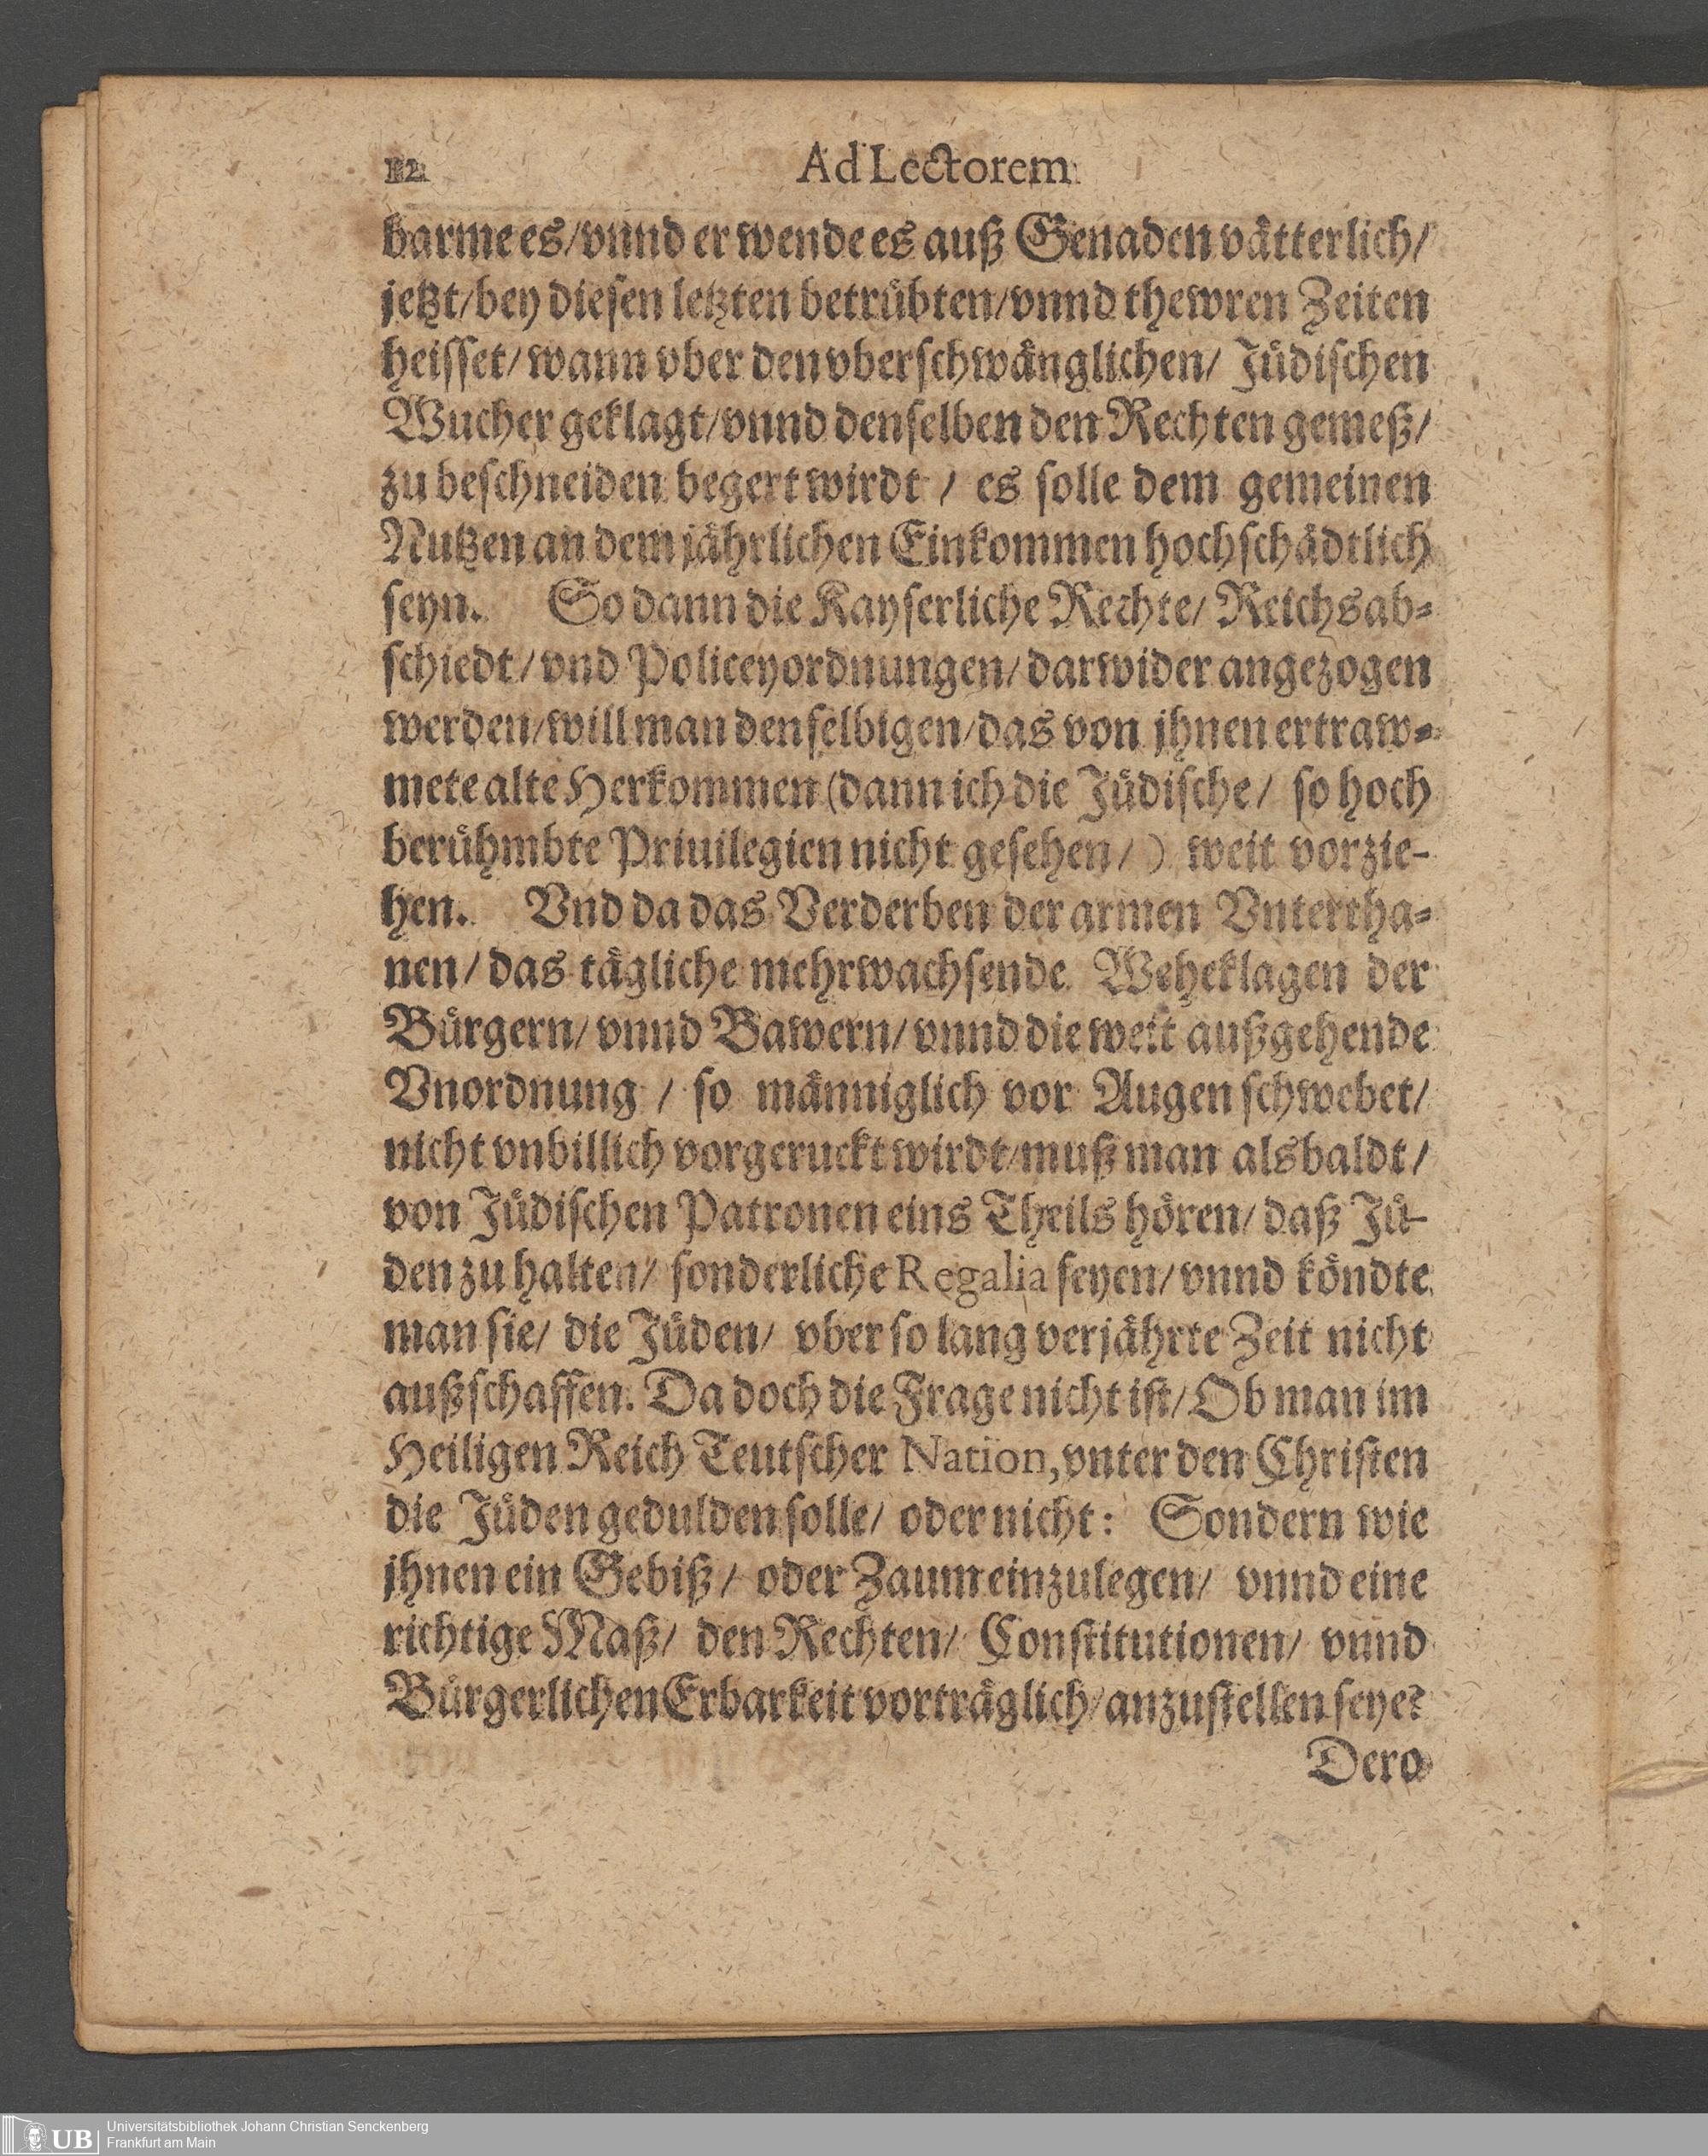 12 Ad Lectorem
barme es/vnnd er wende es auß Genaden vätterlich/
jetzt/bey diesen letzten betrübten/vnnd thewren Zeiten
heisset/wann vber den vberschwänglichen/ Jüdischen
Wucher geklagt/vnnd denselben den Rechten gemeß/
zu beschneiden begert wirdt / es solle dem gemeinen
Nutzen an dem jährlichen Einkommen hochschädtlich
seyn. So dann die Kayserliche Rechte/ Reichsab-
schiedt/vnd Policeyordnungen/darwider angezogen
werden/will man denselbigen/das von jhnen ertraw-
mete alte Herkommen (dann ich die Jüdische/ so hoch
berühmbte Priuilegien nicht gesehen/) weit vorzie-
hen. Vnd da das Verderben der armen Vntertha-
nen/das tägliche mehrwachsende Weheklagen der
Bürgern/vnnd Bawern/vnnd die weit außgehende
Vnordnung / so männiglich vor Augen schwebet/
nicht vnbillich vorgeruckt wirdt/muß man alsbaldt/
von Jüdischen Patronen eins Theils hören/daß Jü-
den zu halten/ sonderliche Regalia seyen/vnnd köndte
man sie/ die Jüden/ vber so lang verjährte Zeit nicht
außschaffen. Da doch die Frage nicht ist/Ob man im
Heiligen Reich Teutscher Nation, vnter den Christen
die Jüden gedulden solle/ oder nicht: Sondern wie
jhnen ein Gebiß/ oder Zaum einzulegen/ vnnd eine
richtige Maß/ den Rechten/ Constitutionen/ vnnd
Bürgerlichen Erbarkeit vorträglich/anzustellen seye?
Dero
UB Universitätsbibliothek Johann Christian Senckenberg
Frankfurt am Main